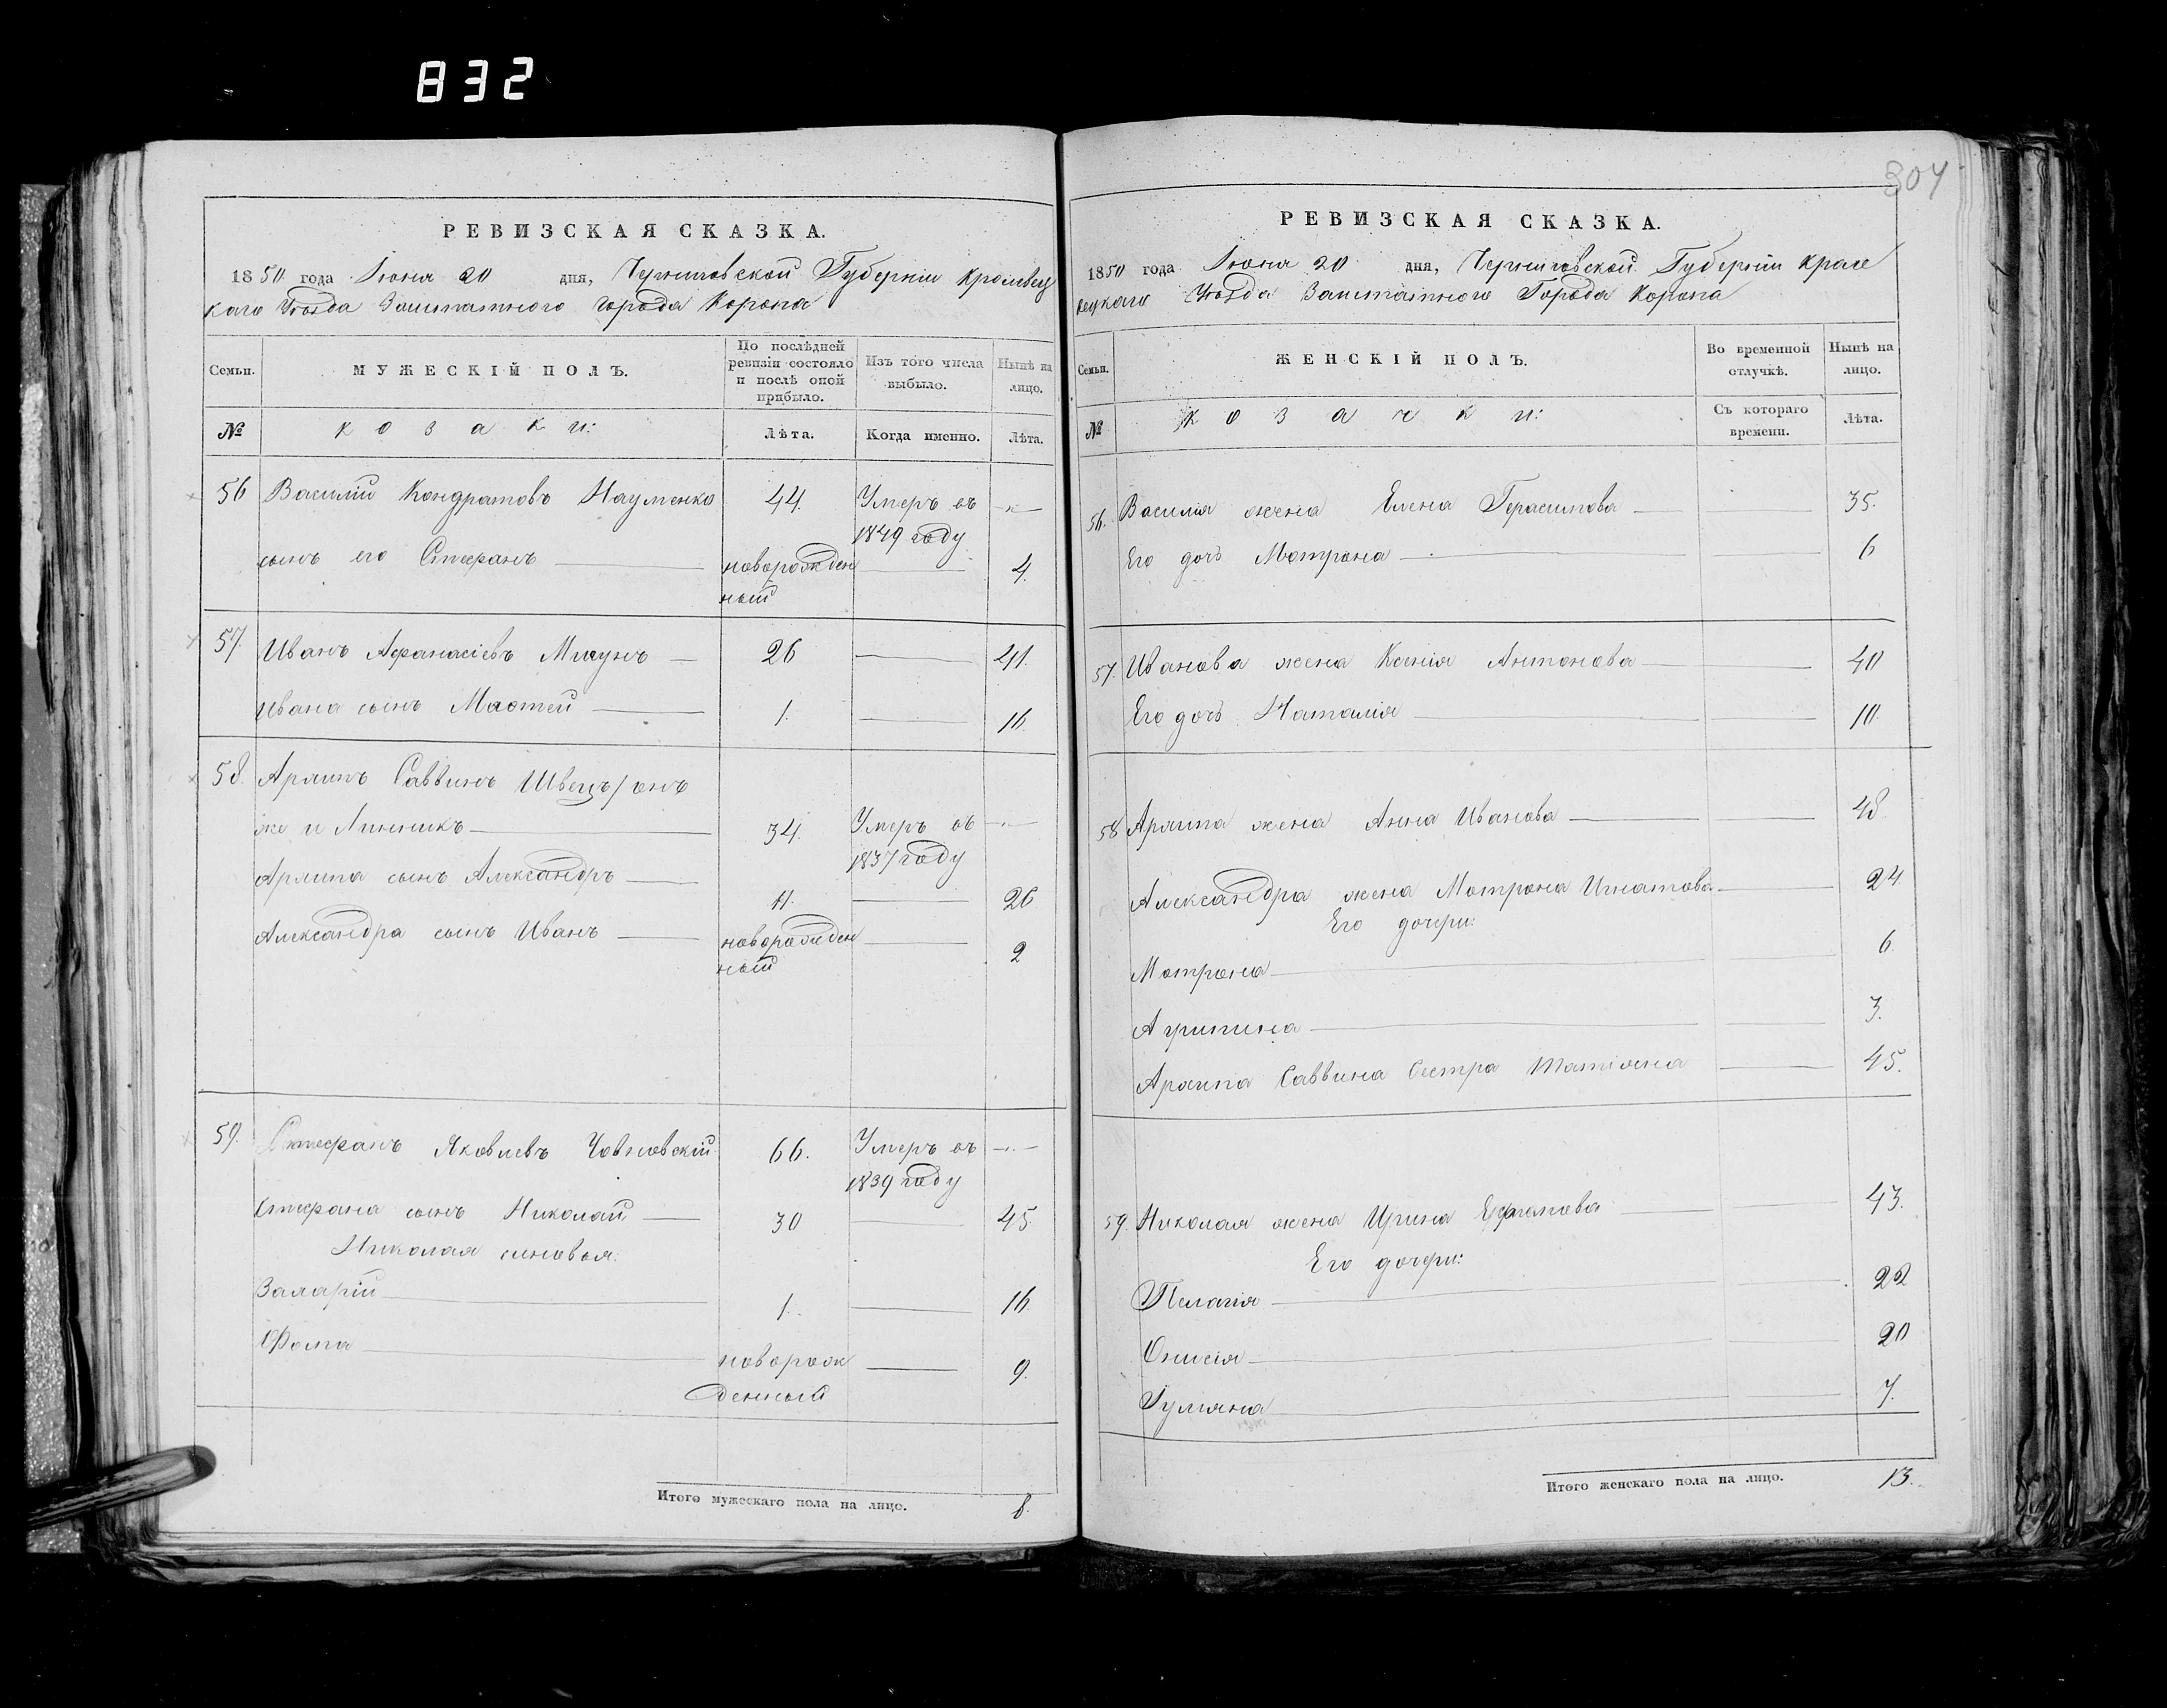 832
304
РЕВИЗСКАЯ СКАЗКА.
1850 года Іюня 20 дня, Черниговской Губерніи Кролевец
каго Уѣзда Заштатного города Коропа
Семьи.
МУЖЕСКІЙ ПОЛЪ.
По послѣдней ревизіи состояло и послѣ оной прибыло.
Изъ того числа выбыло.
Нынѣ на лицо.
№
козаки:
Лѣта.
Когда именно.
Лѣта.
56 Василій Кондратовъ Науменко 44. Умеръ въ
1849 году
сынъ его Стефанъ новорожден 4.
ный
57. Иванъ Афанасіевъ 26 41.
Ивана сынъ 1. 16.
58. Архипъ Саввинъ Швецъ/онъ
же и Линникъ 34. Умеръ въ
1837 году
Архипа сынъ Александръ 11. 26
Александра сынъ Иванъ новорожден 2
ный
59. Стефанъ Яковлевъ 66. Умеръ въ
1839 году
Стефана сынъ Николай 30 45.
Николая синовья:
1. 16
Фома новорож 9.
денный
Итого мужескаго пола на лицо. 8.
РЕВИЗСКАЯ СКАЗКА.
1850 года Іюня 20 дня, Черниговской Губерніи Крале
вецкаго Уѣзда Заштатного Города Коропа
Семьи.
ЖЕНСКІЙ ПОЛЪ.
Во временной отлучкѣ.
Нынѣ на лицо.
№
козачки:
Съ котораго времени.
Лѣта.
56. Василія жена Елена Герасимова 35.
Его дочь Мотрона 6
57. Иванова жена Ксенія Антонова 40
Его дочь Наталія 10.
58 Архипа жена Анна Иванова 48
Александра жена Мотрона Игнатова 24.
Его дочери:
Мотрона 6.
Агрипина 3.
Архипа Саввина Сестра Татіяна 45.
59. Николая жена Ирина 43.
Его дочери:
Пелагія 22
Онисія 20
Гуляна 7.
Итого женскаго пола на лицо. 13.